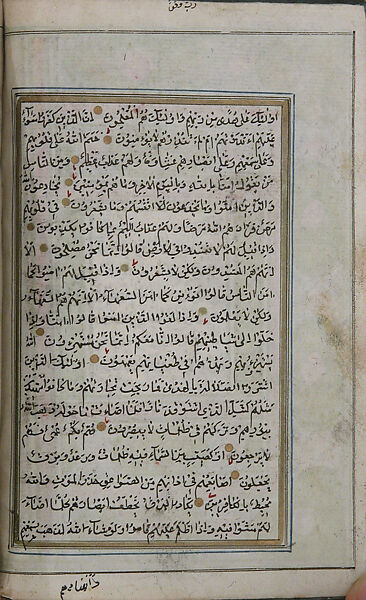 اولئك على هدى من ربهم واولئك هم المفلحون ان الذين كفروا سواء
عليهم ءانذرتهم ام لم تنذرهم لا يؤمنون ختم الله على قلوبهم
وعلى سمعهم وعلى ابصارهم غشاوة ولهم عذاب عظيم ومن الناس
من يقول امنا بالله وباليوم الاخر وما هم بمؤمنين يخادعون
الله والذين امنوا وما يخدعون الا انفسهم وما يشعرون في قلوبهم
مرض فزادهم الله مرضا ولهم عذاب اليم بما كانوا يكذبون
واذا قيل لهم لا تفسدوا في الارض قالوا انما نحن مصلحون الا
انهم هم المفسدون ولكن لا يشعرون واذا قيل لهم امنوا كما
امن الناس قالوا انؤمن كما امن السفهاء الا انهم هم السفهاء
ولكن لا يعلمون واذا لقوا الذين امنوا قالوا امنا واذا
خلوا الى شياطينهم قالوا انا معكم انما نحن مستهزؤن الله
يستهزئ بهم ويمدهم في طغيانهم يعمهون اولئك الذين
اشتروا الضلالة بالهدى فما ربحت تجارتهم وما كانوا مهتدين
مثلهم كمثل الذي استوقد نارا فلما اضاءت ما حوله ذهب الله
بنورهم وتركهم في ظلمات لا يبصرون صم بكم عمي فهم
لا يرجعون او كصيب من السماء فيه ظلمات ورعد وبرق
يجعلون اصابعهم في اذانهم من الصواعق حذر الموت والله
محيط بالكافرين يكاد البرق يخطف ابصارهم كلما اضاء
لهم مشوا فيه واذا اظلم عليهم قاموا ولو شاء الله لذهب بسمعهم